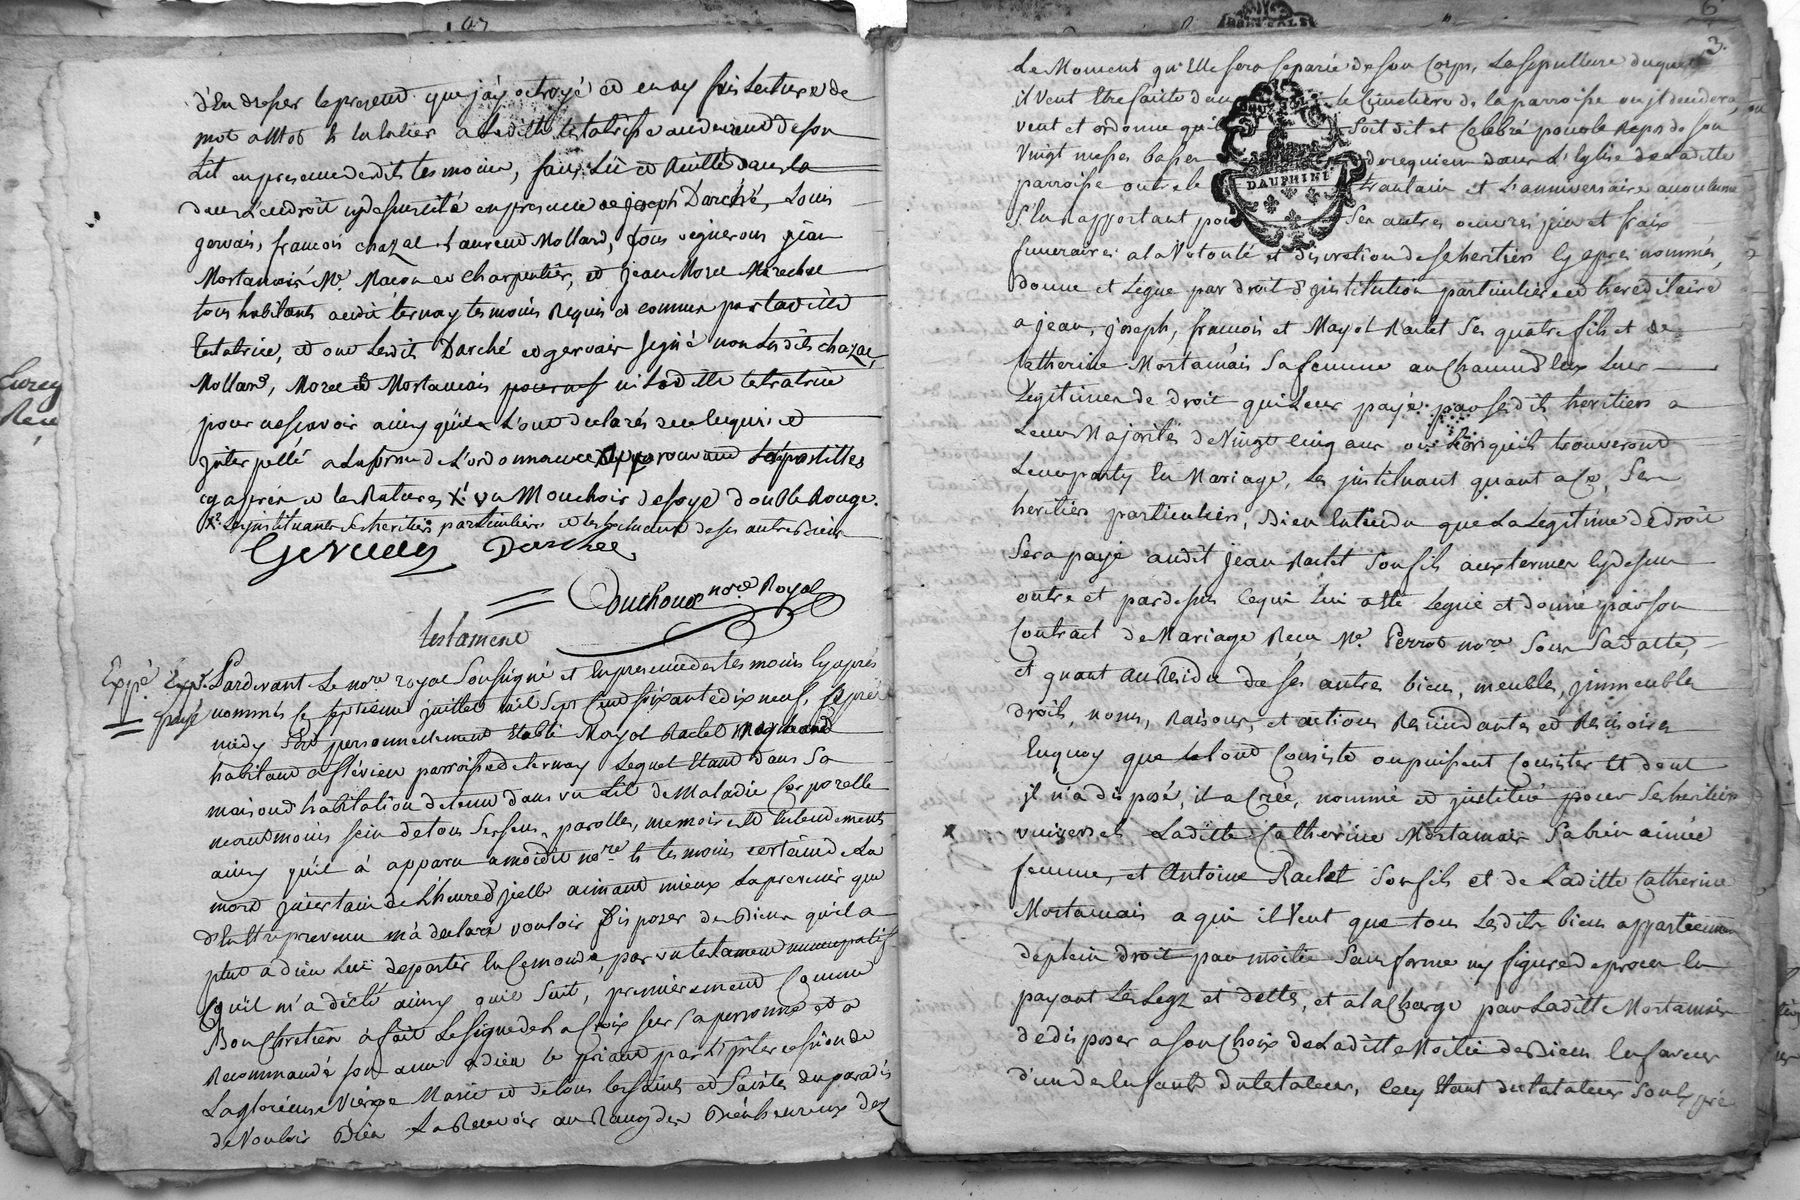 d'En dresser le present que j'ay octroyé et en ay fais lecture de
mot a Mot & en entier a Laditte testatrisse au devant de son
Lit en presence desdits tesmoins, fait Lû et Recitté dans la
dans L'endroit que dessus cité en presence de joseph Darché, Louis
gervais, francois chazal Laurend Mollard, tous vignerons jean
Mortamais Me. Macon et charpentier, et jean Morel Marechal
tous habitants audit ternay tesmoins Requis et connus par laditte
testatrice, et ont Lesdits Darché et gervais signé non Lesdits chazal,
Mollard, Morel et Mortamais ni Laditte testatrice
pour ne scavoir ainsy qu'ils L'ont declarés de ce enquis et
jnterpellé a La forme de L'ordonnance approuvant Lapostilles
cy apres et les Ratures X. un Mouchoir de soye double Rouge.
X. Les jnstituants ses heritiers particuliers et les excluant de ses autres Biens
Gervais Darchée
Couchoud nore. Royal
testament
Expé. Expé. Pardevant Le nore. royal Soussigné et En presence des tesmoins Cy apres
payé nommés Le septieme juillet mil Sept Cent soixante dix neuf, apres
midy fut personnellement Etabli Mayol Raclet Marchand
habitant a flévieu parroisse de ternay Lequel Etant dans Sa
maison d'habitation detenu dans un Lit de Maladie Corporelle
neantmoins sein de tous Ses sens, parolles, memoire et Entendements
ainsy qu'il à apparu a moidit nore. & tesmoins certain de La
mort jncertain de L'heure d'jcelle aimant mieux La prevenir que
d'En Etre prevenu m'a declaré vouloir Disposer des Biens qu'il a
plut a dieu Lui departir En Ce monde, par un testament nuncupatif
Qu'il m'a dicté ainsy qu'il Suit, premierement Comme
Bon Chretien à fait Le Signe de La Croix sur Sa personne et a
Recommandé son ame a dieu le priant par L'jntercession de
La glorieuse Vierge Marie et de tous les saints et Saintes du paradis
de Vouloir Bien La Recevoir au Rang des Bienheureux dez
6
3.
Le Moment qu'Elle sera Separée de son Corps, La sepulture duquel
il Veut Etre faite dans le Cimetiere de la parroisse ou jl decedera,
veut et ordonne qu'il Soit dit et Celebré pour le Repos de son
Vingt messes basses de requiem dans L'Eglise de Laditte
parroisse outre le trantain et L'anniversaire accoutumé
S'En Rapportant pour Ses autres oeuvres pies et frais
funeraires a la Volonté et discretion de Ses heritiers Cy apres nommés,
donne et Legue par droit d'jnstitution particuliere et hereditaire
a jean, joseph, francois et Mayol Raclet Ses quatre fils et de
Catherine Mortamais Sa femme a un Chacund'Eux Leur
Legitime de droit qui Leur payé par Sesdits heritiers a
Leurs Majorités de Vingt Cinq ans ou Lorsqu'ils trouveront
Leur party En Mariage, Les jnstituant quant a Ce, Ses
heritiers particuliers, Bien Entendu que La Legitime de droit
Sera payé audit jean Raclet Son fils aux termes Cy dessus
outre et pardessus Ce qui Lui a eté Legué et donné par son
Contract de Mariage Recu Me. Perrot nore. Sous Sa datte,
et quant au Residu de ses autres biens, meubles, jmmeubles
droits, noms, Raisons, et actions Rescindantes et Rescisoires
En quoy que le tout Consiste ou puissent Consister Et dont
jl n'a disposé, il a Créé, nommé et jnstitué pour Ses heritiers
X universels Laditte Catherine Mortamais Sa bien aimée
femme, et Antoine Raclet Son fils et de Laditte Catherine
Mortamais a qui il Veut que tous Lesdits biens appartiennent
de plein droit par moitié Sans forme ny figure de proces En
payant Les Legs et dettes, et a La Charge par Laditte Mortamais
de disposer a Son Choix de Laditte Moitié des Biens En faveur
d'un des Enfants du testateur, Ceey Etant du testateur
DAUPHINÉ